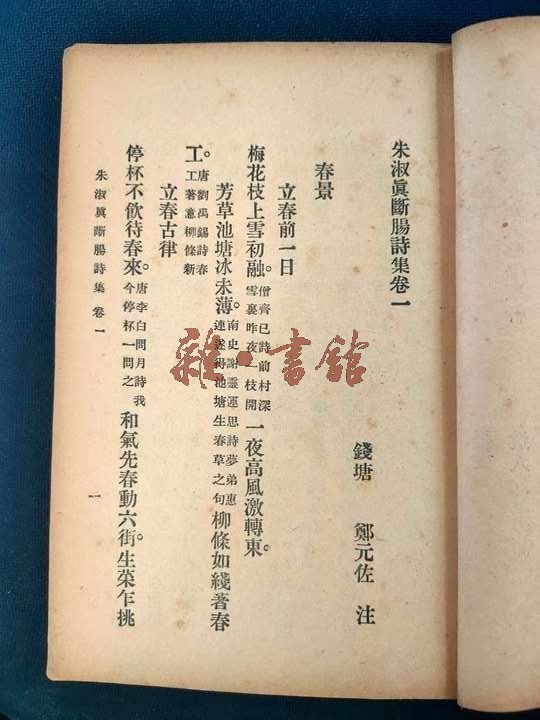 朱淑眞斷腸詩集卷一
錢塘 鄭元佐 注
春景
立春前一日
梅花枝上雪初融。僧齊已詩前村深雪裏昨夜一枝開一夜高風激轉東。
芳草池塘冰未薄。南史謝靈運思詩夢弟惠連遂得池塘生春草之句柳條如綫著春
工。唐劉禹錫詩春工著意柳條新
立春古律
停杯不飮待春來。唐李白問月詩我今停杯一問之和氣先春動六街。生菜乍挑
朱淑眞斷腸詩集 卷一 一
雜·書館